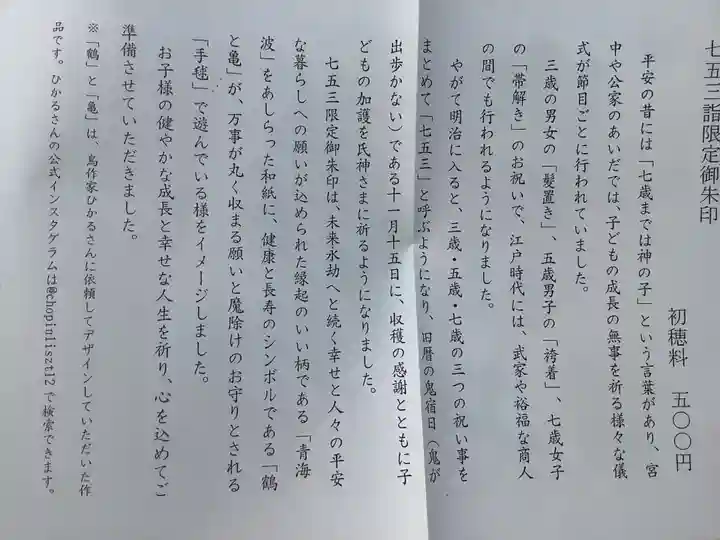 七五三詣限定御朱印
初穂料　五〇〇円
平安の昔には「七歳までは神の子」という言葉があり、宮
中や公家のあいだでは、子どもの成長の無事を祈る様々な儀
式が節目ごとに行われていました。
三歳の男女の「髪置き」、五歳男子の「袴着」、七歳女子
の「帯解き」のお祝いで、江戸時代には、武家や裕福な商人
の間でも行われるようになりました。
やがて明治に入ると、三歳・五歳・七歳の三つの祝い事を
まとめて「七五三」と呼ぶようになり、旧暦の鬼宿日（鬼が
出歩かない）である十一月十五日に、収穫の感謝とともに子
どもの加護を氏神さまに祈るようになりました。
七五三限定御朱印は、未来永劫へと続く幸せと人々の平安
な暮らしへの願いが込められた縁起のいい柄である「青海
波」をあしらった和紙に、健康と長寿のシンボルである「鶴
と亀」が、万事が丸く収まる願いと魔除けのお守りとされる
「手毬」で遊んでいる様をイメージしました。
お子様の健やかな成長と幸せな人生を祈り、心を込めてご
準備させていただきました。
※「鶴」と「亀」は、鳥作家ひかるさんに依頼してデザインしていただいた作
品です。ひかるさんの公式インスタグラムは@chopinliszt12 で検索できます。